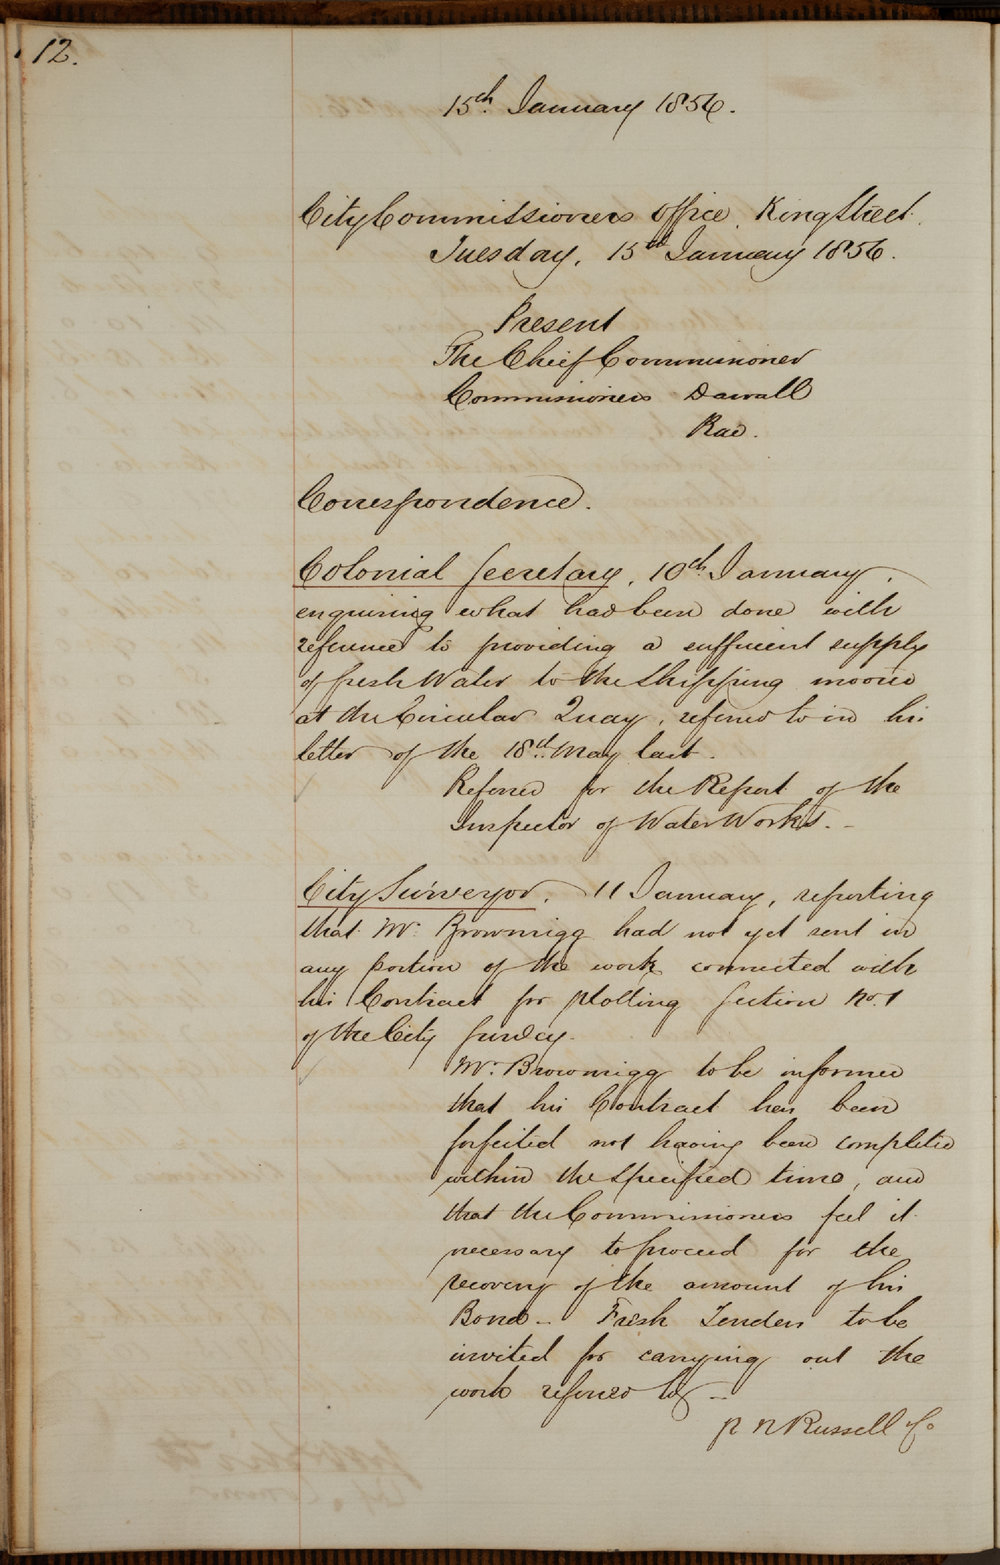 12.
15th January 1856.
City Commissioners Office King Street.
Tuesday, 15th January 1856.
Present
The Chief Commissioner
Commissioners Darvall
Rae.
Correspondence.
Colonial Secretary, 10th January,
enquiring what had been done with
reference to providing a sufficient supply
of fresh Water to the Shipping moored
at the Circular Quay, referred to in his
letter of the 18th May last.
Referred for the Report of the
Inspector of Water Works. -
City Surveyor, 11 January, reporting
that Mr. Brownrigg had not yet sent in
any portion of the work connected with
his Contract for plotting Section No. 1
of the City Survey.
Mr. Brownrigg to be informed
that his Contract has been
forfeited not having been completed
within the specified time, and
that the Commissioners feel it
necessary to proceed for the
recovery of the amount of his
Bond - Fresh Tenders to be
invited for carrying out the
work referred to -
P N Russell Co